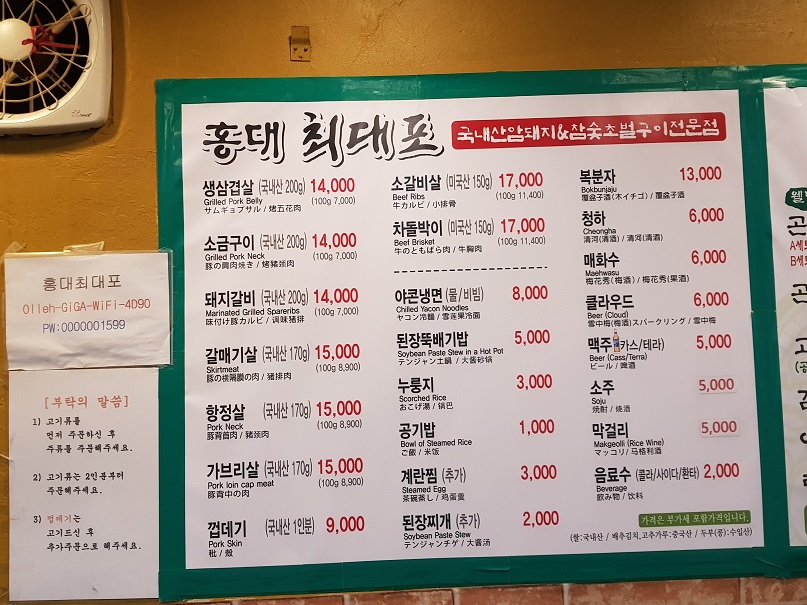 홍대 최대포
국내산암돼지&참숯초벌구이전문점
생삼겹살 (국내산 200g) 14,000
Grilled Pork Belly (100g 7,000)
サムギョプサル / 烤五花肉
소금구이 (국내산 200g) 14,000
Grilled Pork Neck (100g 7,000)
豚の肩肉焼き / 烤猪颈肉
돼지갈비 (국내산 200g) 14,000
Marinated Grilled Spareribs (100g 7,000)
味付け豚カルビ / 调味猪排
갈매기살 (국내산 170g) 15,000
Skirtmeat (100g 8,900)
豚の横隔膜の肉 / 猪排肉
항정살 (국내산 170g) 15,000
Pork Neck (100g 8,900)
豚背首肉 / 猪颈肉
가브리살 (국내산 170g) 15,000
Pork loin cap meat (100g 8,900)
豚背中の肉
껍데기 (국내산 1인분) 9,000
Pork Skin
秕 / 殼
소갈비살 (미국산 150g) 17,000
Beef Ribs (100g 11,400)
牛カルビ / 小排骨
차돌박이 (미국산 150g) 17,000
Beef Brisket (100g 11,400)
牛のともばら肉 / 牛胸肉
야콘냉면 (물/비빔) 8,000
Chilled Yacon Noodles
ヤコン冷麺 / 雪莲果冷面
된장뚝배기밥 5,000
Soybean Paste Stew in a Hot Pot
テンジャン土鍋 / 大酱砂锅
누룽지 3,000
Scorched Rice
おこげ湯 / 锅巴
공기밥 1,000
Bowl of Steamed Rice
ご飯 / 米饭
계란찜 (추가) 3,000
Steamed Egg
茶碗蒸し / 鸡蛋羹
된장찌개 (추가) 2,000
Soybean Paste Stew
テンジャンチゲ / 大酱汤
복분자 13,000
Bokbunjaju
覆盆子酒(木イチゴ) / 覆盆子酒
청하 6,000
Cheongha
清河(清酒) / 清河(清酒)
매화수 6,000
Maehwasu
梅花秀(梅酒) / 梅花秀(果酒)
클라우드 6,000
Beer (Cloud)
雪中梅(梅酒)スパークリング / 雪中梅
맥주(카스/테라) 5,000
Beer (Cass/Terra)
ビール / 啤酒
소주 5,000
Soju
焼酎 / 烧酒
막걸리 5,000
Makgeolli (Rice Wine)
マッコリ / 马格利酒
음료수 (콜라/사이다/환타) 2,000
Beverage
飲み物 / 饮料
가격은 부가세 포함가격입니다.
(쌀:국내산 / 배추김치,고추가루:중국산 / 두부(콩):수입산)
홍대최대포
Olleh-GiGA-WiFi-4D90
PW:0000001599
[부탁의 말씀]
1) 고기류를
먼저 주문하신 후
주류를 주문해주세요.
2) 고기류는 2인분부터
주문해주세요.
3) 껍데기는
고기드신 후
추가주문으로 해주세요.